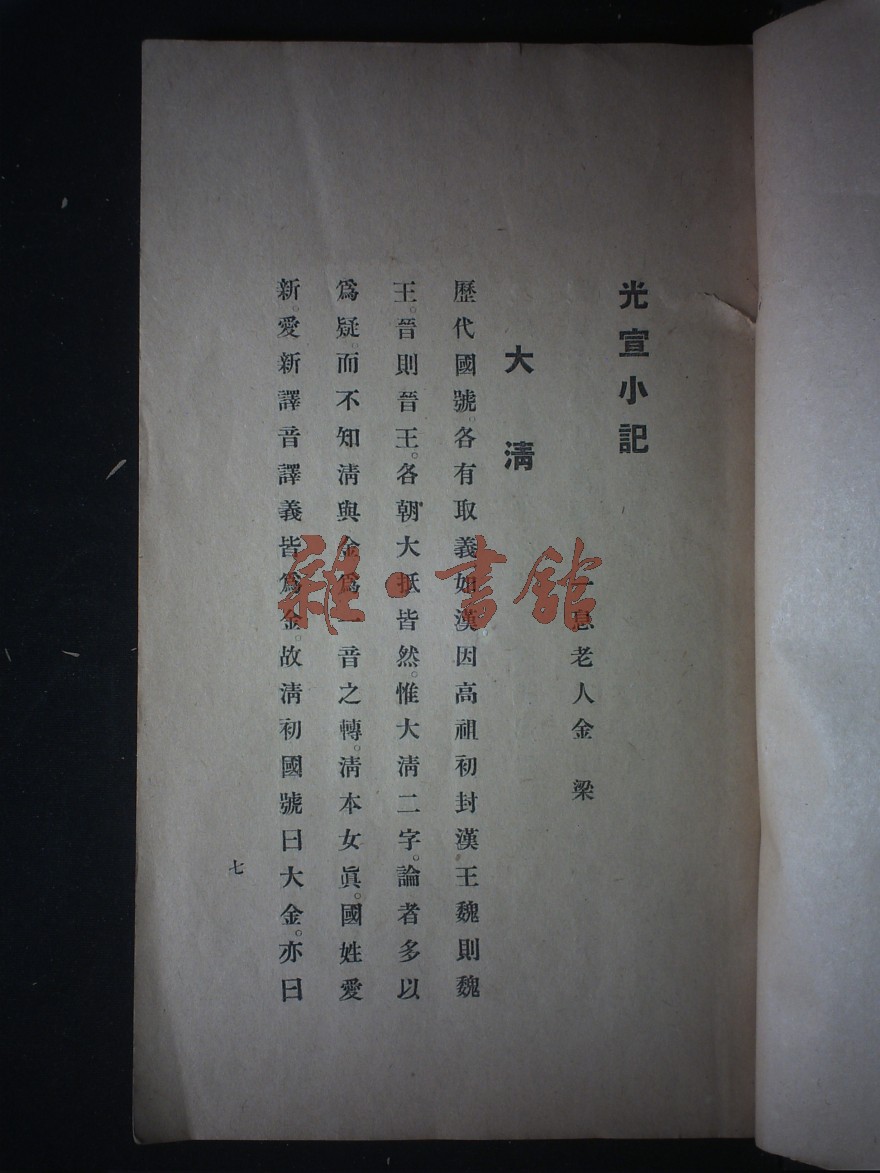 光宣小記
一息老人金 梁
大 清
歷代國號。各有取義如漢因高祖初封漢王魏則魏
王。晉則晉王。各朝大抵皆然。惟大清二字。論者多以
爲疑。而不知清與金爲一音之轉。清本女眞。國姓愛
新。愛新譯音譯義皆爲金。故清初國號曰大金。亦曰
七
雜·書館